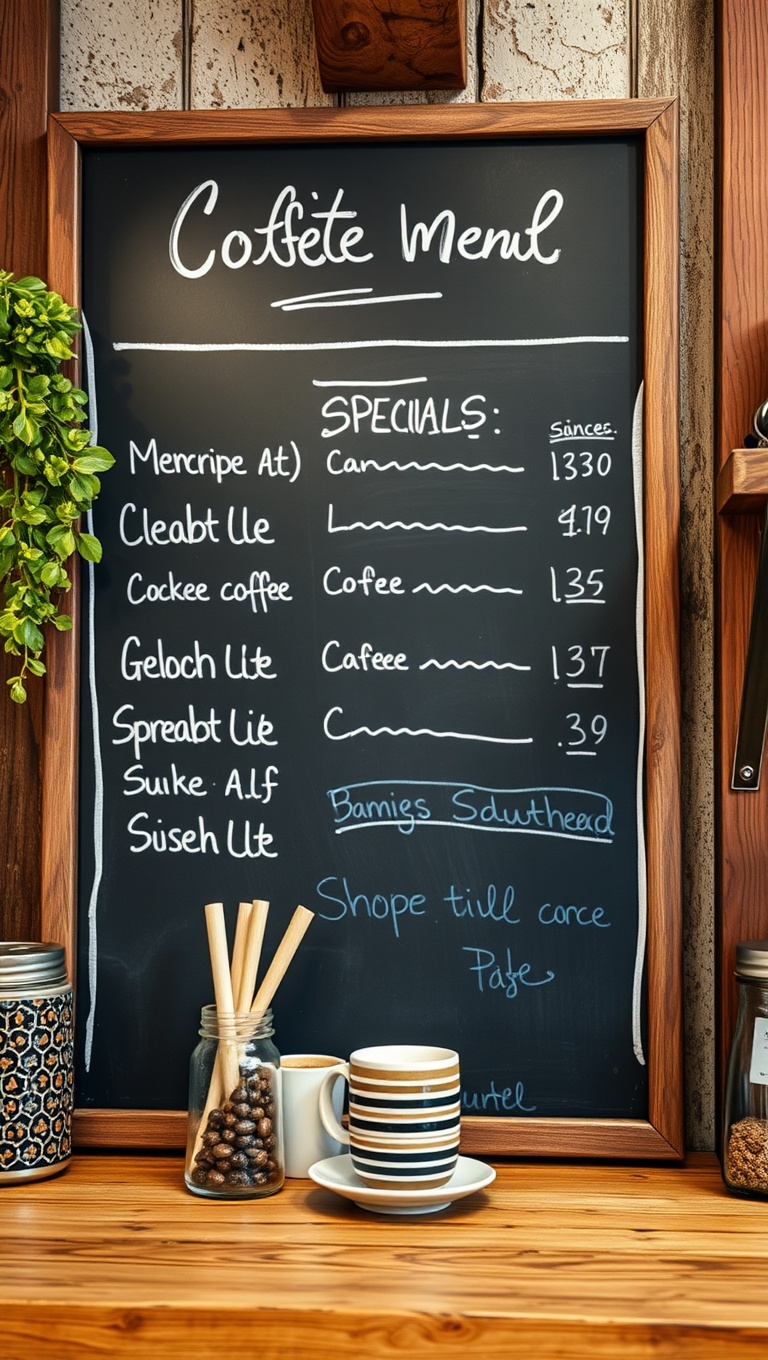 Coffete Menul
SPECIIALS:
Sinces.
Mencripe At) Can 1330
Cleabt Lle L 4.19
Cockee coffee Cofee 135
Geloch Lite Cafeee 137
Spreabt Lie C .39
Suike Alf
Siiseh Ute
Bamigs Sdwtheead
Shope till conce
Pafe
urtel